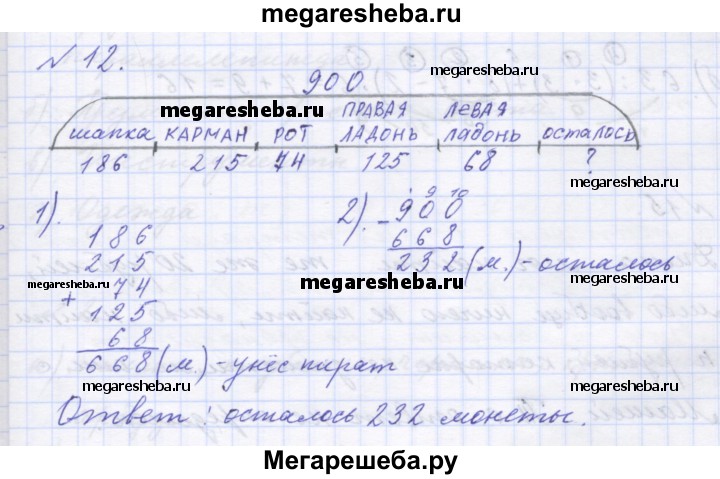 megaresheba.ru
№ 12.
900
шапка КАРМАН РОТ ПРАВАЯ ЛАДОНЬ ЛЕВАЯ ладонь осталось
186 215 74 125 68 ?
megaresheba.ru
megaresheba.ru
megaresheba.ru
1).
186
215
+ 74
125
68
668 (м.) - унёс пират
2). - 900
668
232 (м.) - осталось
9 10
megaresheba.ru
megaresheba.ru
megaresheba.ru
megaresheba.ru
megaresheba.ru
megaresheba.ru
Ответ: осталось 232 монеты.
Мегарешеба.ру